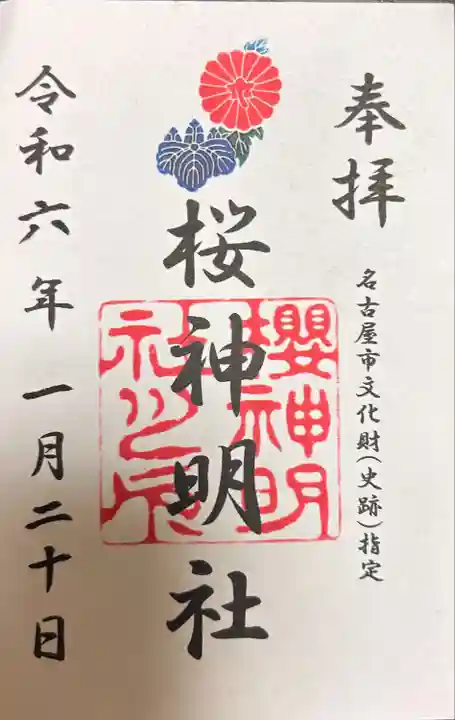 奉拝
名古屋市文化財(史跡)指定
桜神明社
櫻神明社之印
令和六年一月二十日